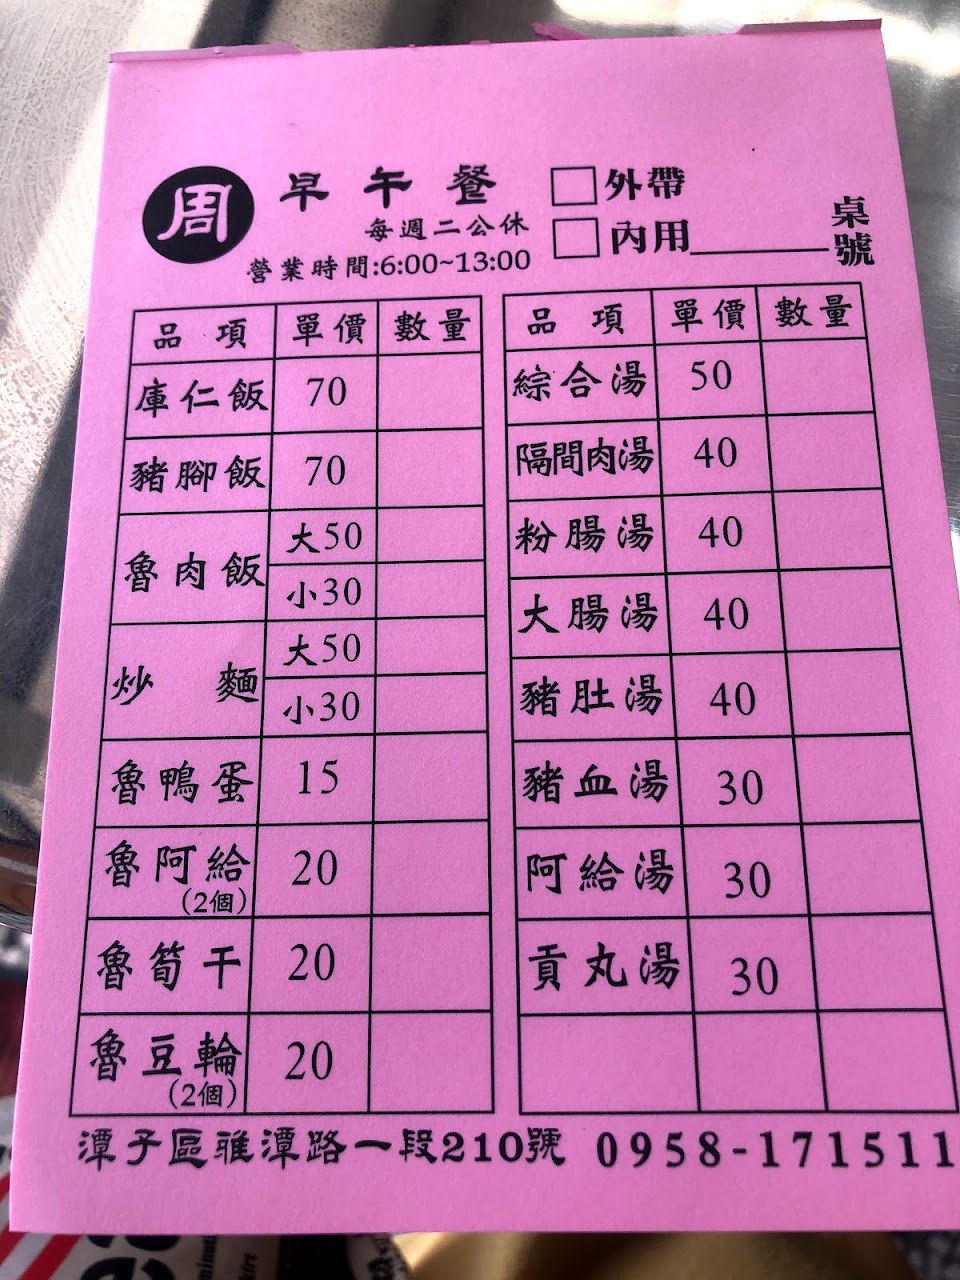 周 早午餐
每週二公休
營業時間:6:00~13:00
□外帶
□內用______桌號
品項 單價 數量
庫仁飯 70
豬腳飯 70
魯肉飯 大50
小30
炒麵 大50
小30
魯鴨蛋 15
魯阿給(2個) 20
魯筍干 20
魯豆輪(2個) 20
品項 單價 數量
綜合湯 50
隔間肉湯 40
粉腸湯 40
大腸湯 40
豬肚湯 40
豬血湯 30
阿給湯 30
貢丸湯 30
潭子區雅潭路一段210號 0958-171511